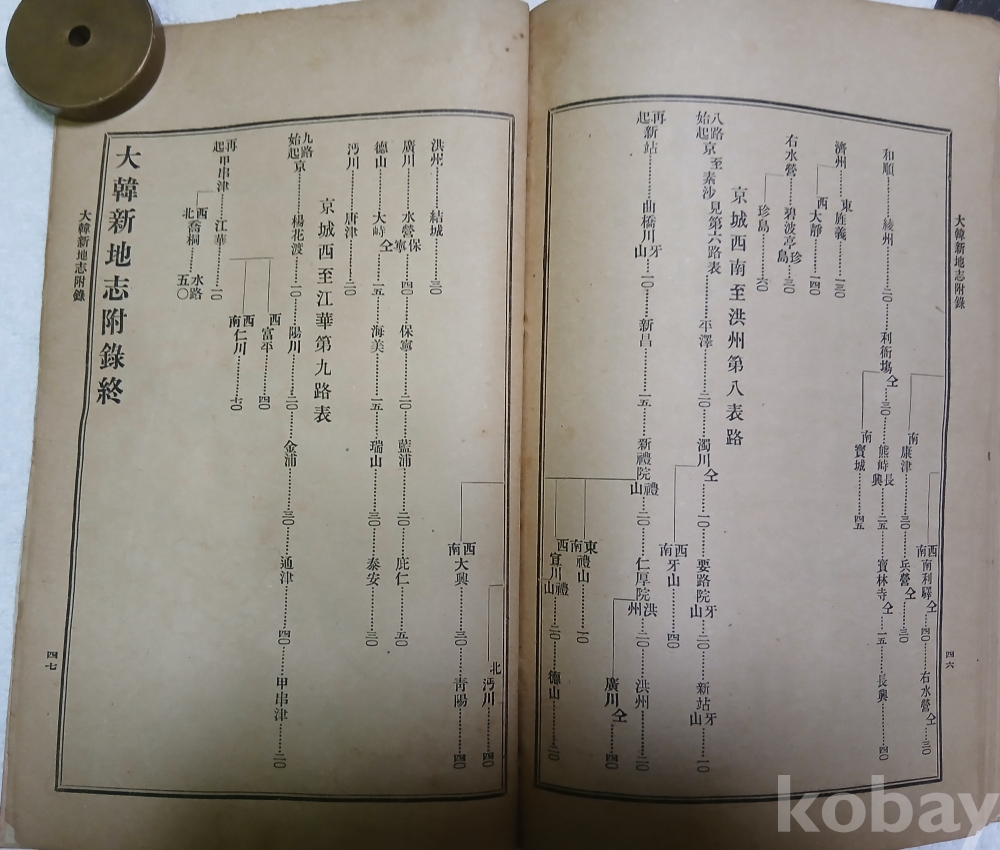 大韓新地志附錄
西南 南利驛仝……四〇……右水營仝……三〇
南 康津……三〇……兵營仝……三〇
和順……綾州……二〇……利衙塲仝……三〇……熊峙長興……二五……寶林寺仝……一五……長興……四〇
南 寶城……四五
濟州……東 旌義……一三〇
西 大靜……一四〇
右水營……碧波亭珍島……三〇
珍島……六〇
京城西南至洪州第八表路
八路始起京 至素沙見第六路表……平澤……二〇……濁川仝……一〇……要路院牙山……二〇……新站牙山……一〇
西南 牙山……四〇
再起新站……曲橋川牙山……一〇……新昌……一五……新禮院禮山……二〇……仁厚院洪州……二〇……洪州……四〇
廣川仝……四〇
東南 禮山……一〇
西 宣川禮山……二〇……德山……二〇
四六
北 沔川……四〇
西南 大興……三〇……靑陽……四〇
洪州……結城……三〇
廣川……水營保寧……四〇……保寧……二〇……藍浦……二〇……庇仁……五〇
德山……大峙仝……一五……海美……一五……瑞山……三〇……泰安……三〇
沔川……唐津……二〇
京城西至江華第九路表
九路始起京……楊花渡……一〇……陽川……二〇……金浦……三〇……通津……四〇……甲串津……二〇
西 富平……四〇
西南 仁川……七〇
再起甲串津……江華……一〇
西北 喬桐……水路五〇
大韓新地志附錄終
大韓新地志附錄
四七
kobay